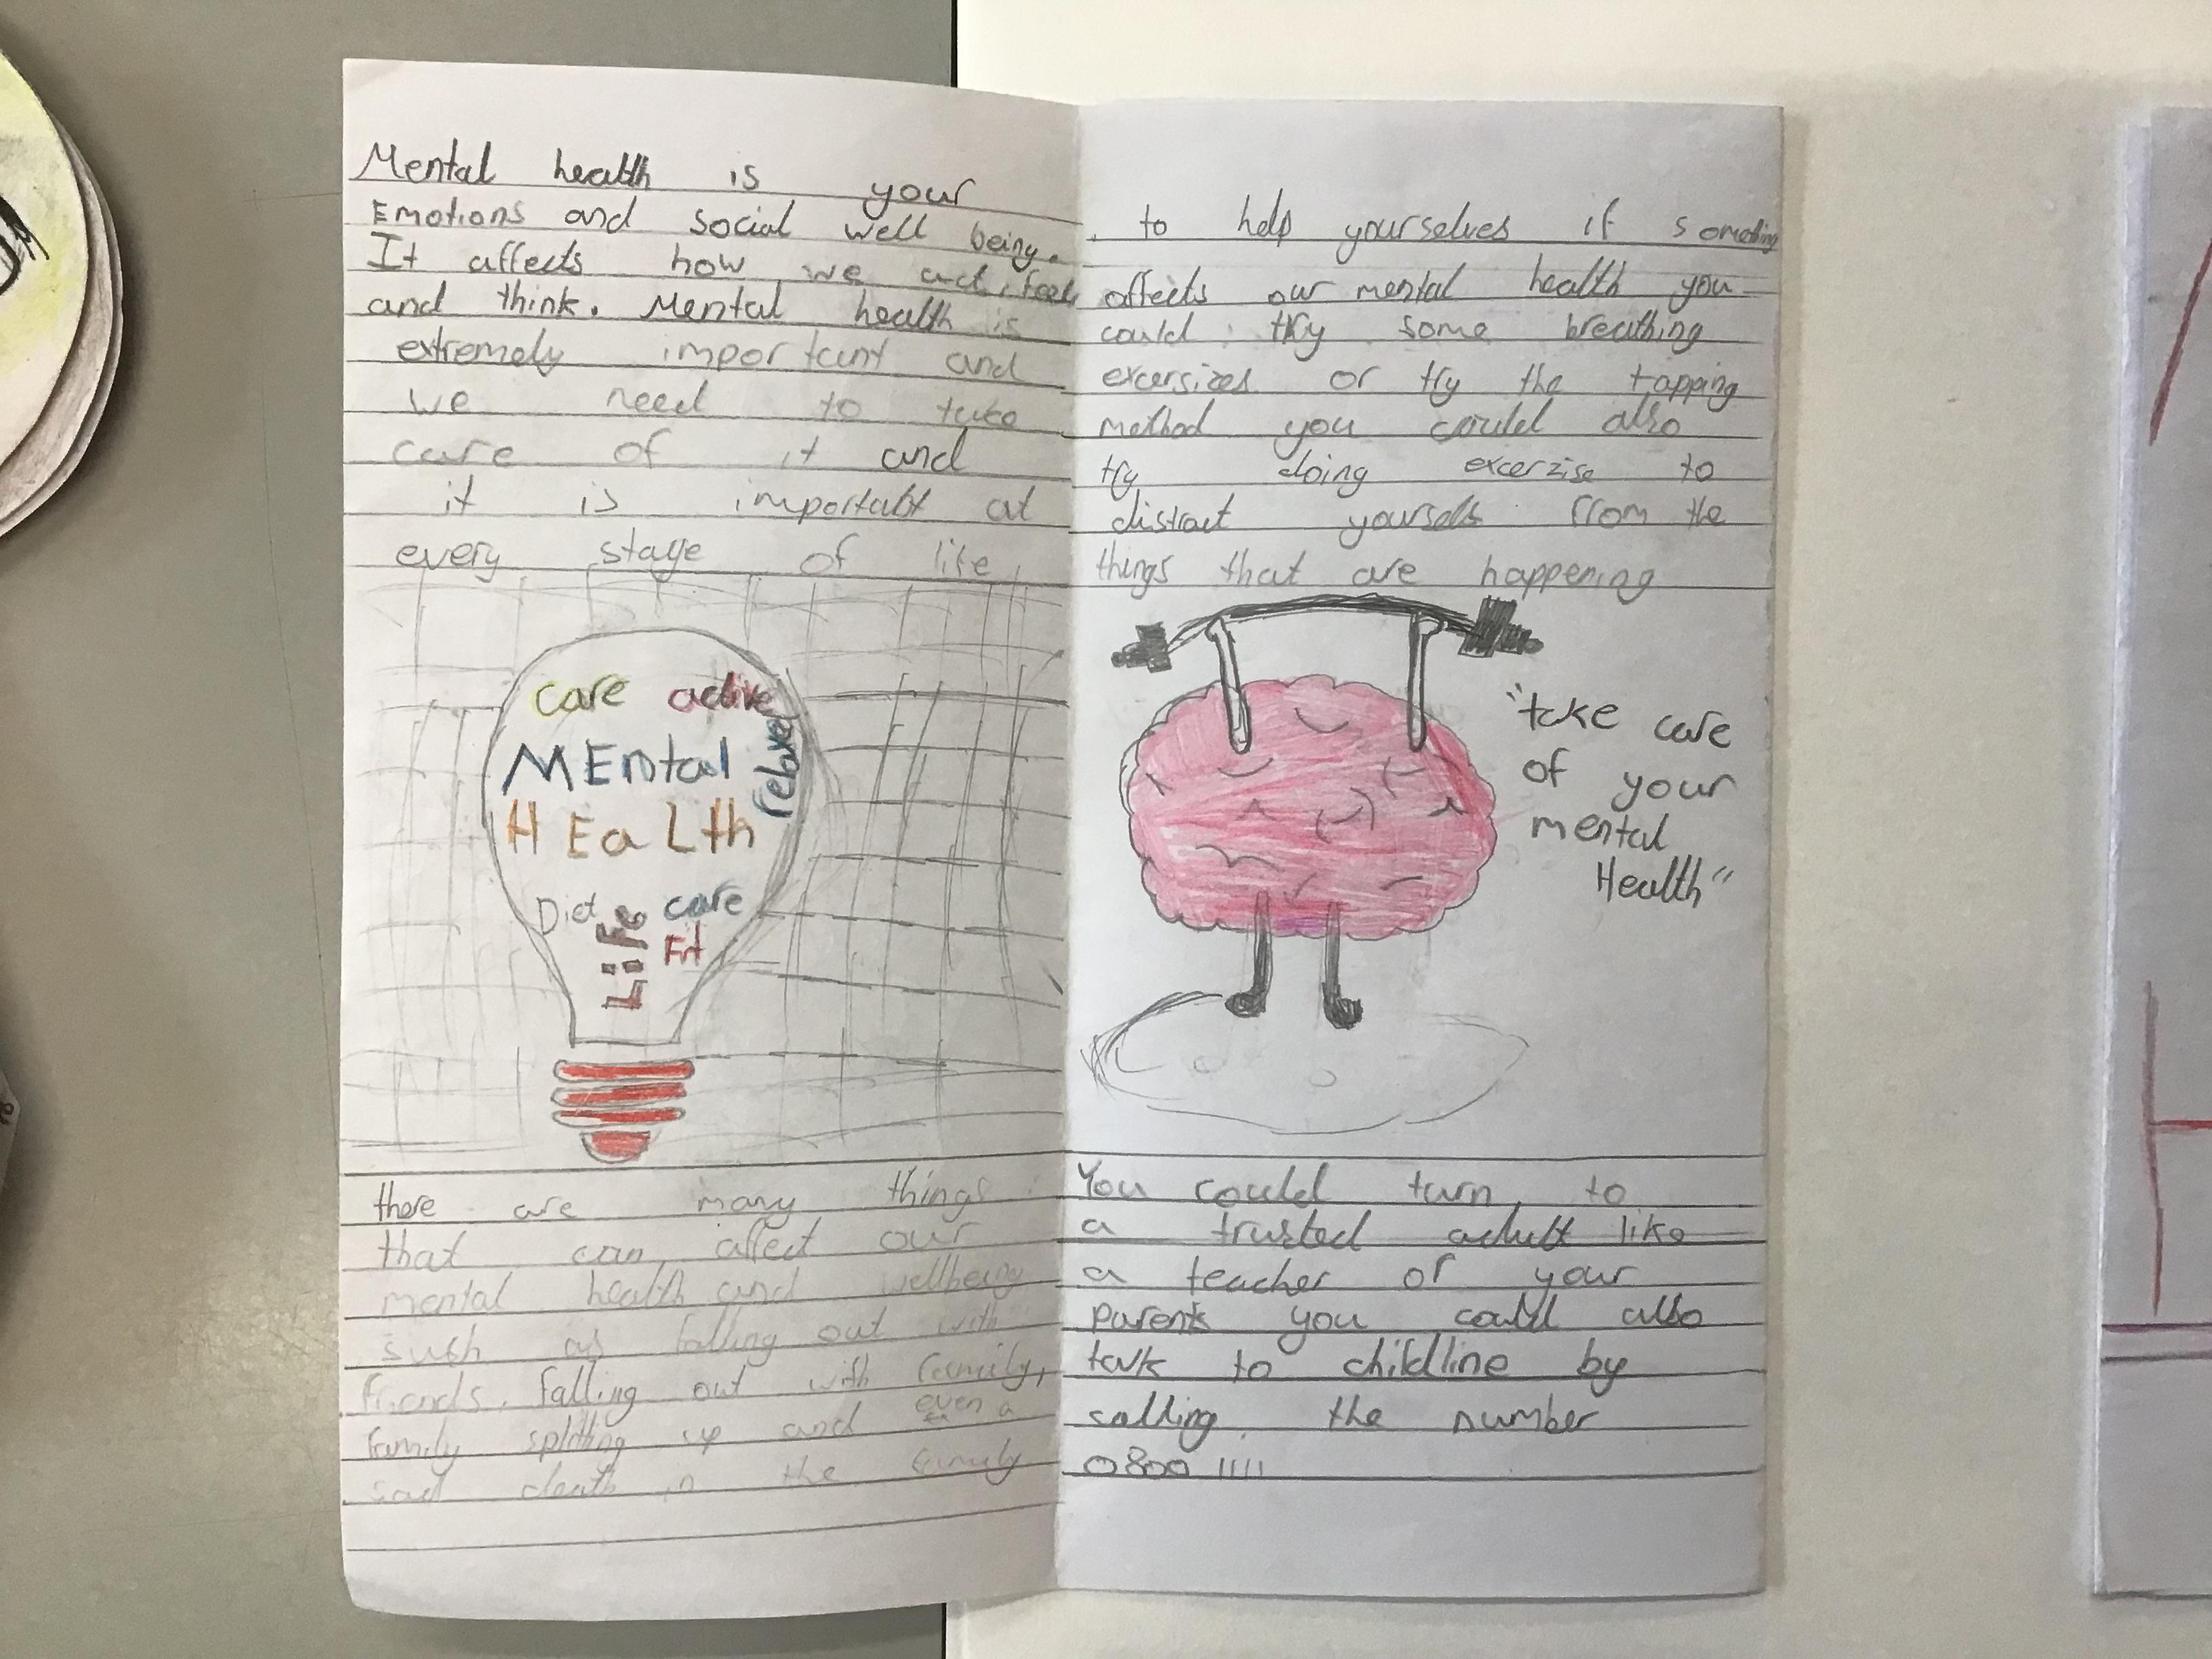 Mental health is your
Emotions and social well being.
It affects how we act, feel
and think. Mental health is
extremely important and
we need to take
care of it and
it is important at
every stage of life
care active
relaxed
MEntal
HEaLth
Diet care
Life
Fit
there are many things
that can affect our
mental health and wellbeing
such as falling out with
friends, falling out with family,
family splitting up and even a
sad death in the family
to help yourselves if something
affects our mental health you
could try some breathing
excersizes or try the tapping
method you could also
try doing excerzise to
distract yourself from the
things that are happening
"take care
of your
mental
Health"
You could turn to
a trusted adult like
a teacher or your
parents you could also
talk to childline by
calling the number
0800 1111